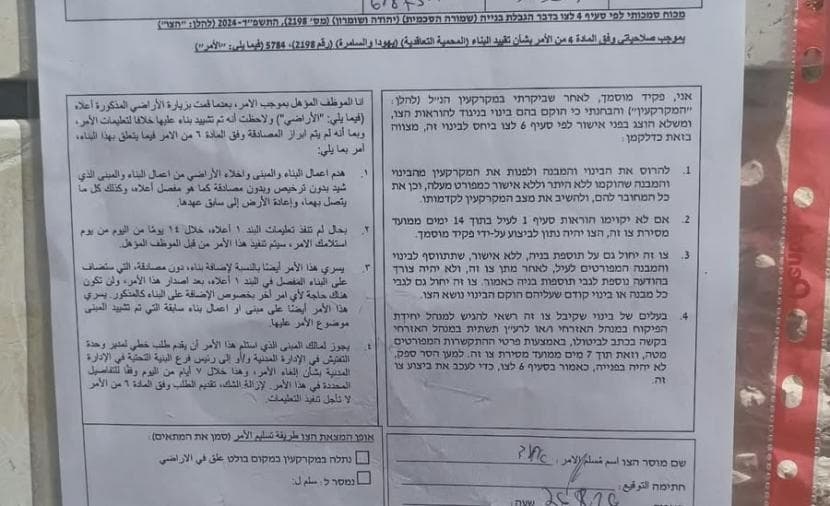 מכוח סמכותי לפי סעיף 4 לצו בדבר הגבלת בנייה (שמורה הסכמית) (יהודה ושומרון) (מס' 2198), התשפ"ד-2024 (להלן: "הצו")
بموجب صلاحياتي وفق المادة 4 من الأمر بشأن تقييد البناء (المحمية التعاقدية) (يهودا والسامرة) (رقم 2198)، 5784 (فيما يلي: "الأمر")
אני, פקיד מוסמך, לאחר שביקרתי במקרקעין הנ"ל (להלן:
"המקרקעין") והבחנתי כי הוקם בהם בינוי בניגוד להוראות הצו,
ומשלא הוצג בפני אישור לפי סעיף 6 לצו ביחס לבינוי זה, מצווה
בזאת כדלקמן:
1. להרוס את הבינוי והמבנה ולפנות את המקרקעין מהבינוי
והמבנה שהוקמו ללא היתר וללא אישור כמפורט מעלה, וכן את
כל המחובר להם, ולהשיב את מצב המקרקעין לקדמותו.
2. אם לא יקוימו הוראות סעיף 1 לעיל בתוך 14 ימים ממועד
מסירת צו זה, הצו יהיה נתון לביצוע על-ידי פקיד מוסמך.
3. צו זה יחול גם על תוספת בניה, ללא אישור, שתתווסף לבינוי
והמבנה המפורטים לעיל, לאחר מתן צו זה, ולא יהיה צורך
בהודעה נוספת לגבי תוספת בניה כאמור. צו זה יחול גם לגבי
כל מבנה או בינוי קודם שעליהם הוקם הבינוי נושא הצו.
4. בעלים של בינוי שקיבל צו זה רשאי להגיש למנהל יחידת
הפיקוח במנהל האזרחי ו/או לרע"ן תשתית במנהל האזרחי
בקשה בכתב לביטולו, באמצעות פרטי ההתקשרות המפורטים
מטה, וזאת תוך 7 ימים ממועד מסירת צו זה. למען הסר ספק,
לא יהיה בפנייה, כאמור בסעיף 6 לצו, כדי לעכב את ביצוע צו
זה.
انا الموظف المؤهل بموجب الامر، بعدما قمت بزيارة الأراضي المذكورة أعلاه
(فيما يلي: "الأراضي") ولاحظت أنه تم تشييد بناء عليها خلافا لتعليمات الأمر،
وبما أنه لم يتم ابراز المصادقة وفق المادة ٦ من الامر فيما يتعلق بهذا البناء،
أمر بما يلي:
١. هدم اعمال البناء والمبنى واخلاء الأراضي من اعمال البناء والمبنى الذي
شيد بدون ترخيص وبدون مصادقة كما هو مفصل أعلاه، وكذلك كل ما
يتصل بهما، وإعادة الأرض إلى سابق عهدها.
٢. بحال لم تنفذ تعليمات البند ١ أعلاه، خلال ١٤ يومًا من اليوم من يوم
استلامك الامر، سيتم تنفيذ هذا الأمر من قبل الموظف المؤهل.
٣. يسري هذا الأمر أيضًا بالنسبة لإضافة بناء، دون مصادقة، التي ستضاف
على البناء المفصل في البند ١ أعلاه، بعد اصدار هذا الأمر، ولن تكون
هناك حاجة لأي امر آخر بخصوص الإضافة على البناء كالمذكور. يسري
هذا الأمر أيضًا على مبنى او اعمال بناء سابقة التي تم تشييد المبنى
موضوع الأمر عليها.
٤. يجوز لمالك المبنى الذي استلم هذا الأمر أن يقدم طلب خطي لمدير وحدة
التفتيش في الإدارة المدنية و/أو إلى رئيس فرع البنية التحتية في الإدارة
المدنية بشأن إلغاء الأمر، وهذا خلال ٧ أيام من اليوم وفقًا للتفاصيل
المحددة في هذا الأمر. لإزالة الشك، تقديم الطلب وفق المادة ٦ من الأمر
لا تأجل تنفيذ التعليمات.
שם מוסר הצו اسم مُسلم الامر:
חתימה التوقيع:
שעה: الساعة
אופן המצאת הצו طريقة تسليم الأمر (סמן את המתאים):
נתלה במקרקעין במקום בולט علق في الاراضي
נמסר ל: سلم ل: